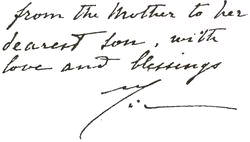 from the Mother to her
dearest son, with
love and blessings